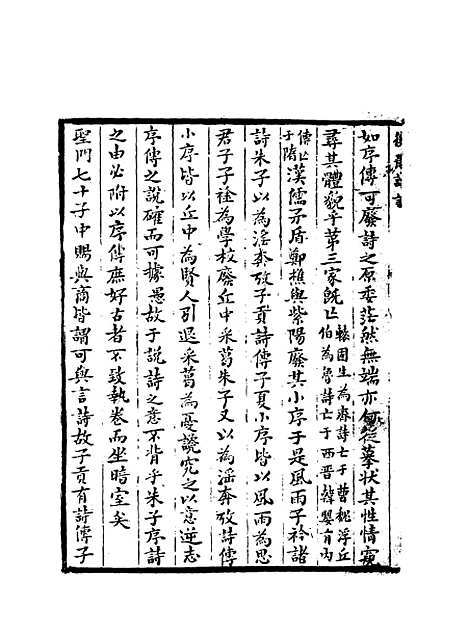 如序傳可廢詩之原委茫然無端亦何從摹狀其性情窺
尋其體貌乎第三家既亡轅固生為齊詩亡于曹魏浮丘
伯為魯詩亡于西晉韓嬰有內
傳亡
于隋漢儒矛盾鄭樵與紫陽廢其小序于是風雨子衿諸
詩朱子以為淫奔攷子貢詩傳子夏小序皆以風雨為思
君子子衿為學校廢丘中采葛朱子又以為淫奔攷詩傳
小序皆以丘中為賢人引退采葛為憂讒究之以意逆志
序傳之說確而可據愚故于說詩之意不背乎朱子序詩
之由必附以序傳庶好古者不致執卷而坐暗室矣
聖門七十子中賜與商皆謂可與言詩故子貢有詩傳子